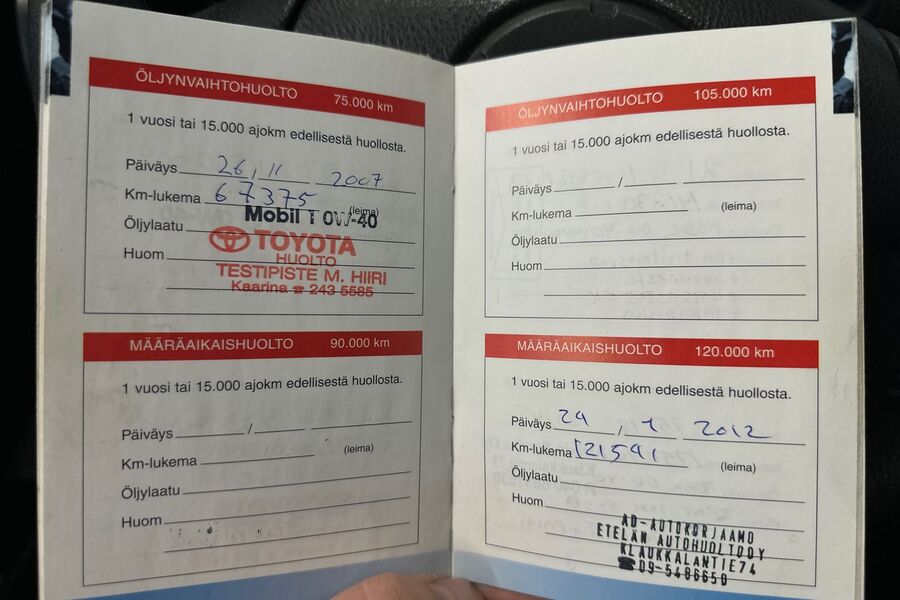 ÖLJYNVAIHTOHUOLTO 75.000 km
1 vuosi tai 15.000 ajokm edellisestä huollosta.
Päiväys 26, 11 2007
Km-lukema 67375 (leima)
Mobil 1 0W-40
Öljylaatu
TOYOTA
Huom
HUOLTO
TESTIPISTE M. HIIRI
Kaarina ☎ 243 5585
MÄÄRÄAIKAISHUOLTO 90.000 km
1 vuosi tai 15.000 ajokm edellisestä huollosta.
Päiväys / 
Km-lukema (leima)
Öljylaatu
Huom
ÖLJYNVAIHTOHUOLTO 105.000 km
1 vuosi tai 15.000 ajokm edellisestä huollosta.
Päiväys /
Km-lukema (leima)
Öljylaatu
Huom
MÄÄRÄAIKAISHUOLTO 120.000 km
1 vuosi tai 15.000 ajokm edellisestä huollosta.
Päiväys 24 / 2012
Km-lukema 121591 (leima)
Öljylaatu
Huom
AD-AUTOKORJAAMO
ETELÄN AUTOHUOLTOOY
KLAUKKALANTIE74
☎09-5486650